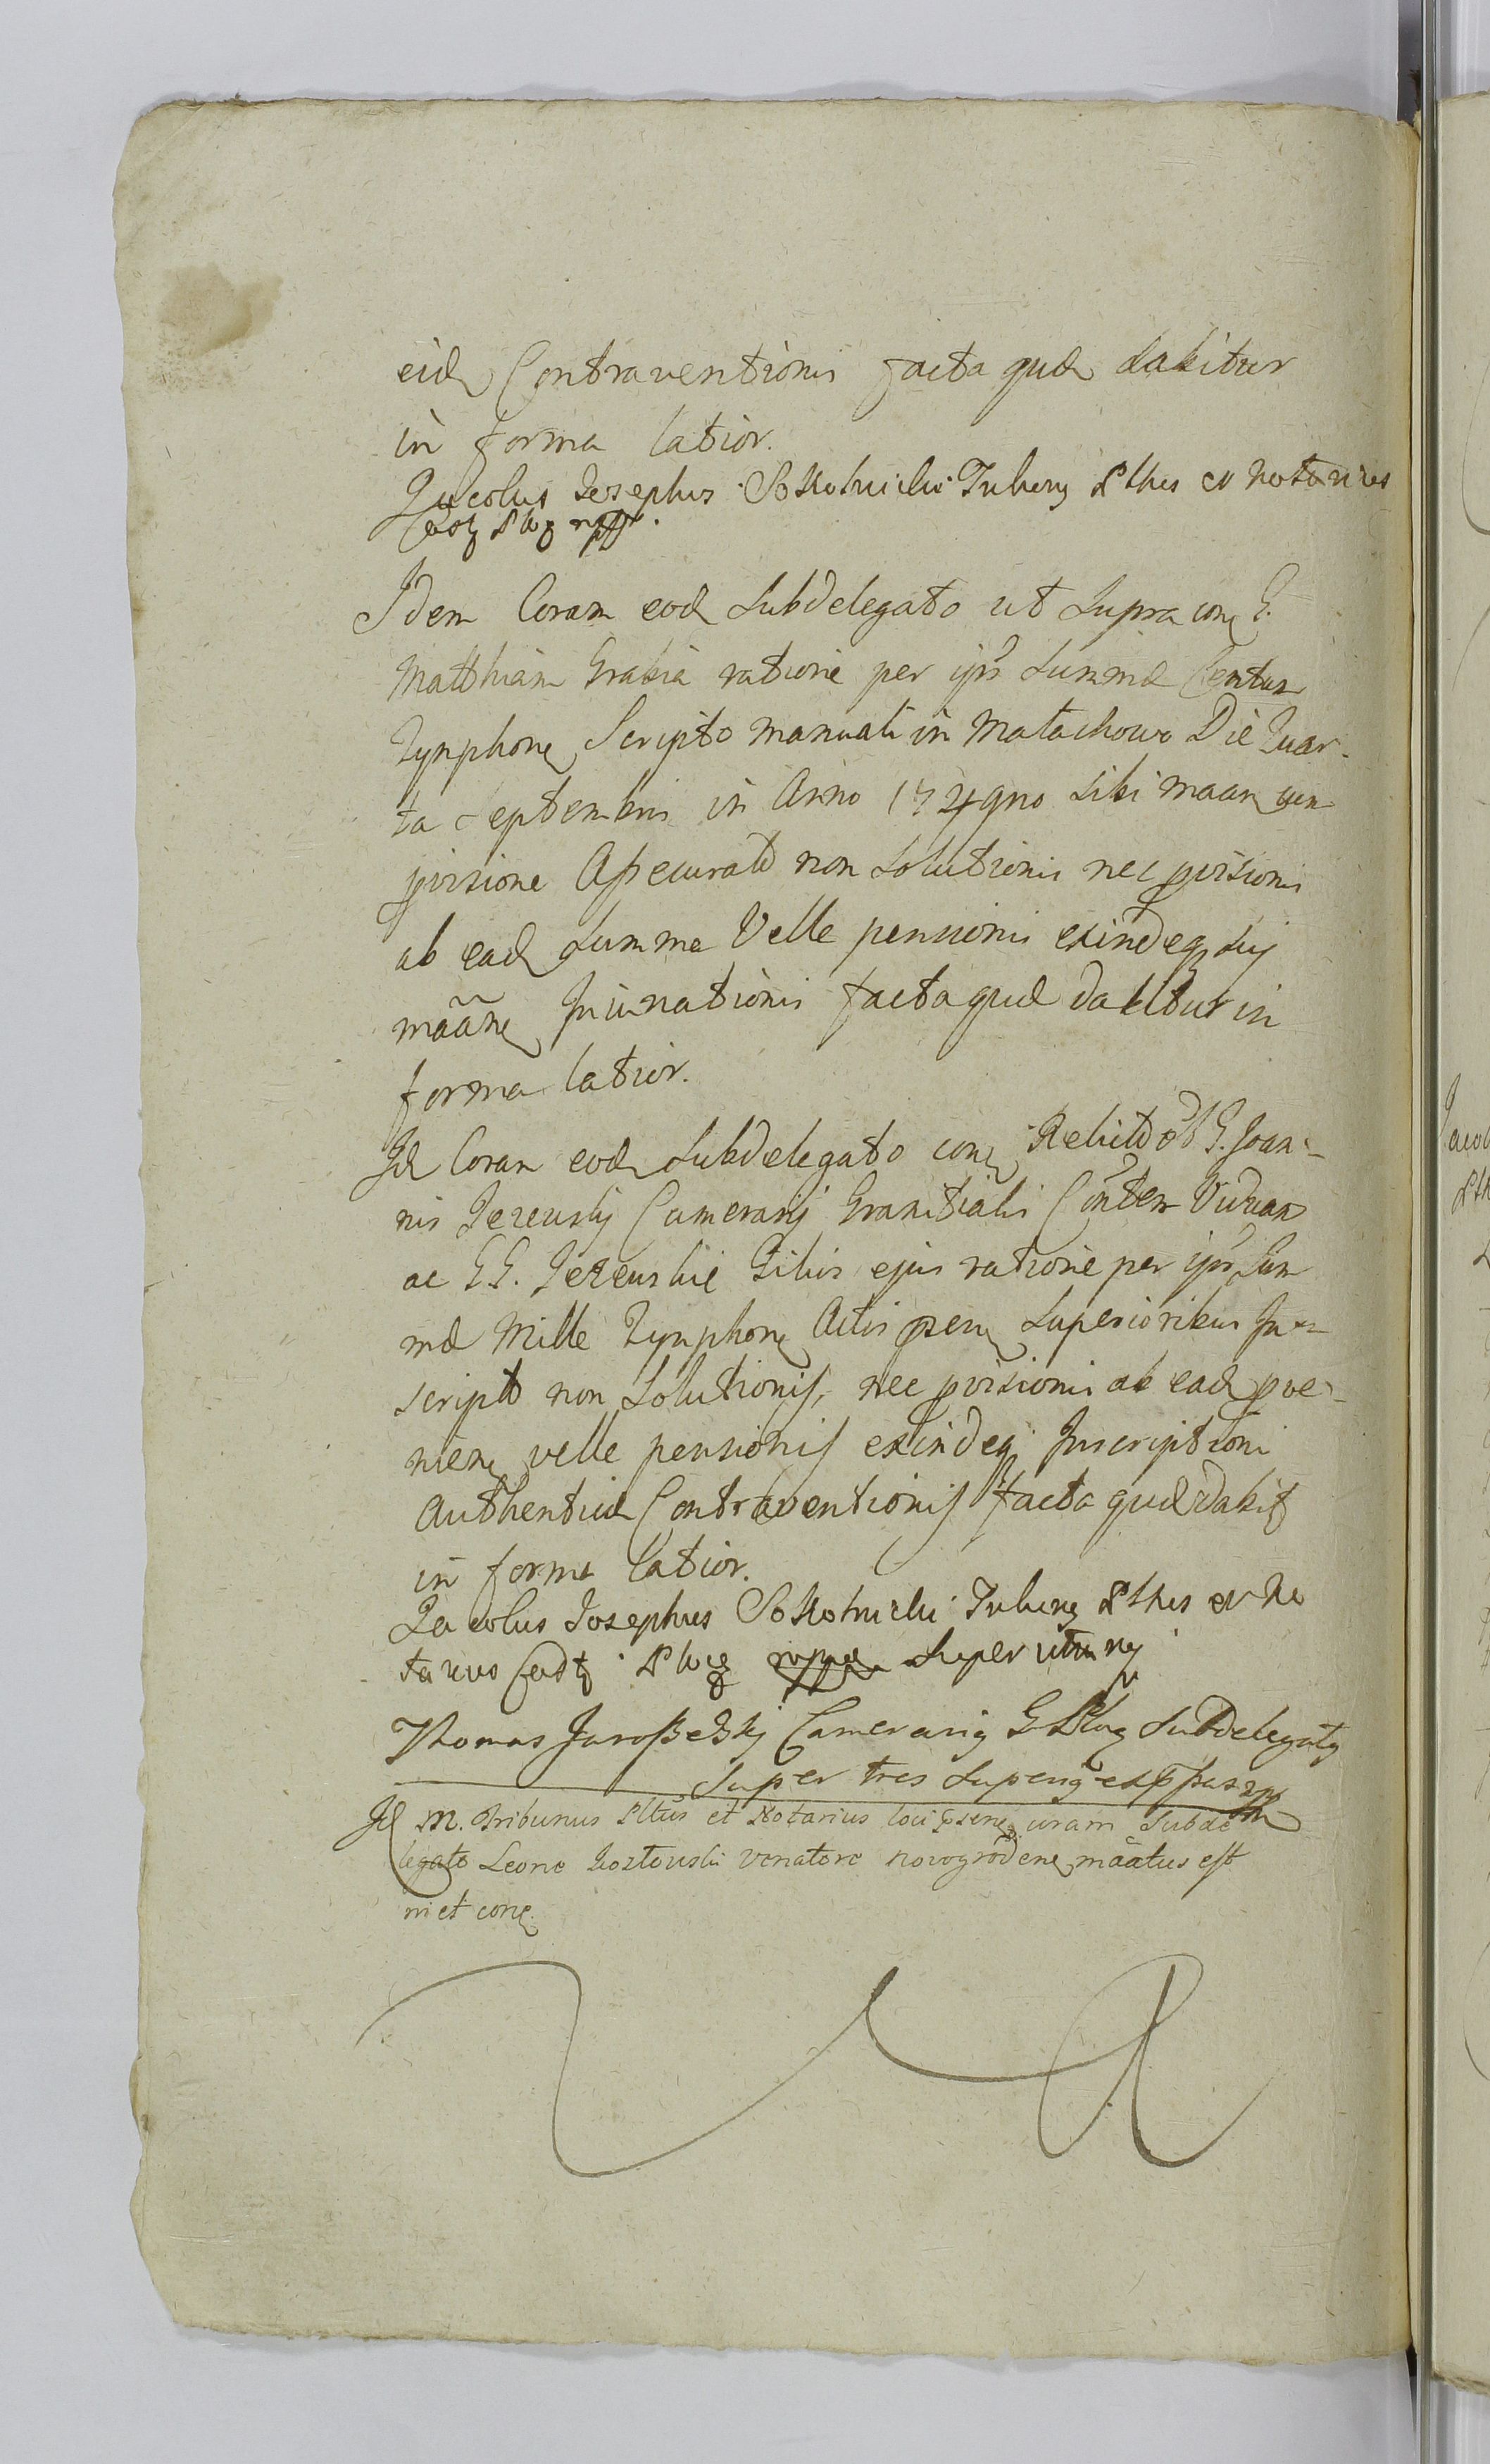 eid Contraventionis facta quæ dabitur
in forma latior.
Jacobus Josephus Sokolnicki Tribunus Plthus et Notarius
Idem Coram eod Subdelegato ut Supra con G.
Matthiam Grabia ratione per ips Summæ Centum
Tynphon Scripto manuali in Matachowo Die Quar-
ta Septembris in Anno 1749no Sibi maan cum
pvisione Assecuratæ non Solutionis nec pvisionis
ab ead Summa Velle pensionis exindeq Suj
mãane Jnunationis facta quæ dabitur in
forma latior.
Id Coram eod Subdelegato con Relictã G. Joan-
nis Jezewskj Camerarij Granitialis Conten Viduam
ac GG. Jezewskie Filios ejus ratione per ips Sum
mæ Mille Tynphon Actis psen Superioribus In-
scriptæ non Solutionis, nec pvisionis ab ead pve-
nien velle pensionis exindeq Inscriptioni
Authenticæ Contraventionis facta quæ dabit
in forma latior.
Jacobus Josephus Sokolnicki Tribunus Plthus et No
tarius Super utru
Thomas Camerariq G Subdelegatq
Super tres Superiq
Id M. Tribunus Pltus et Notarius loci psenq coram Subde
legato Leone Kostowski Venatore novogrodene mãatus est
m et conq